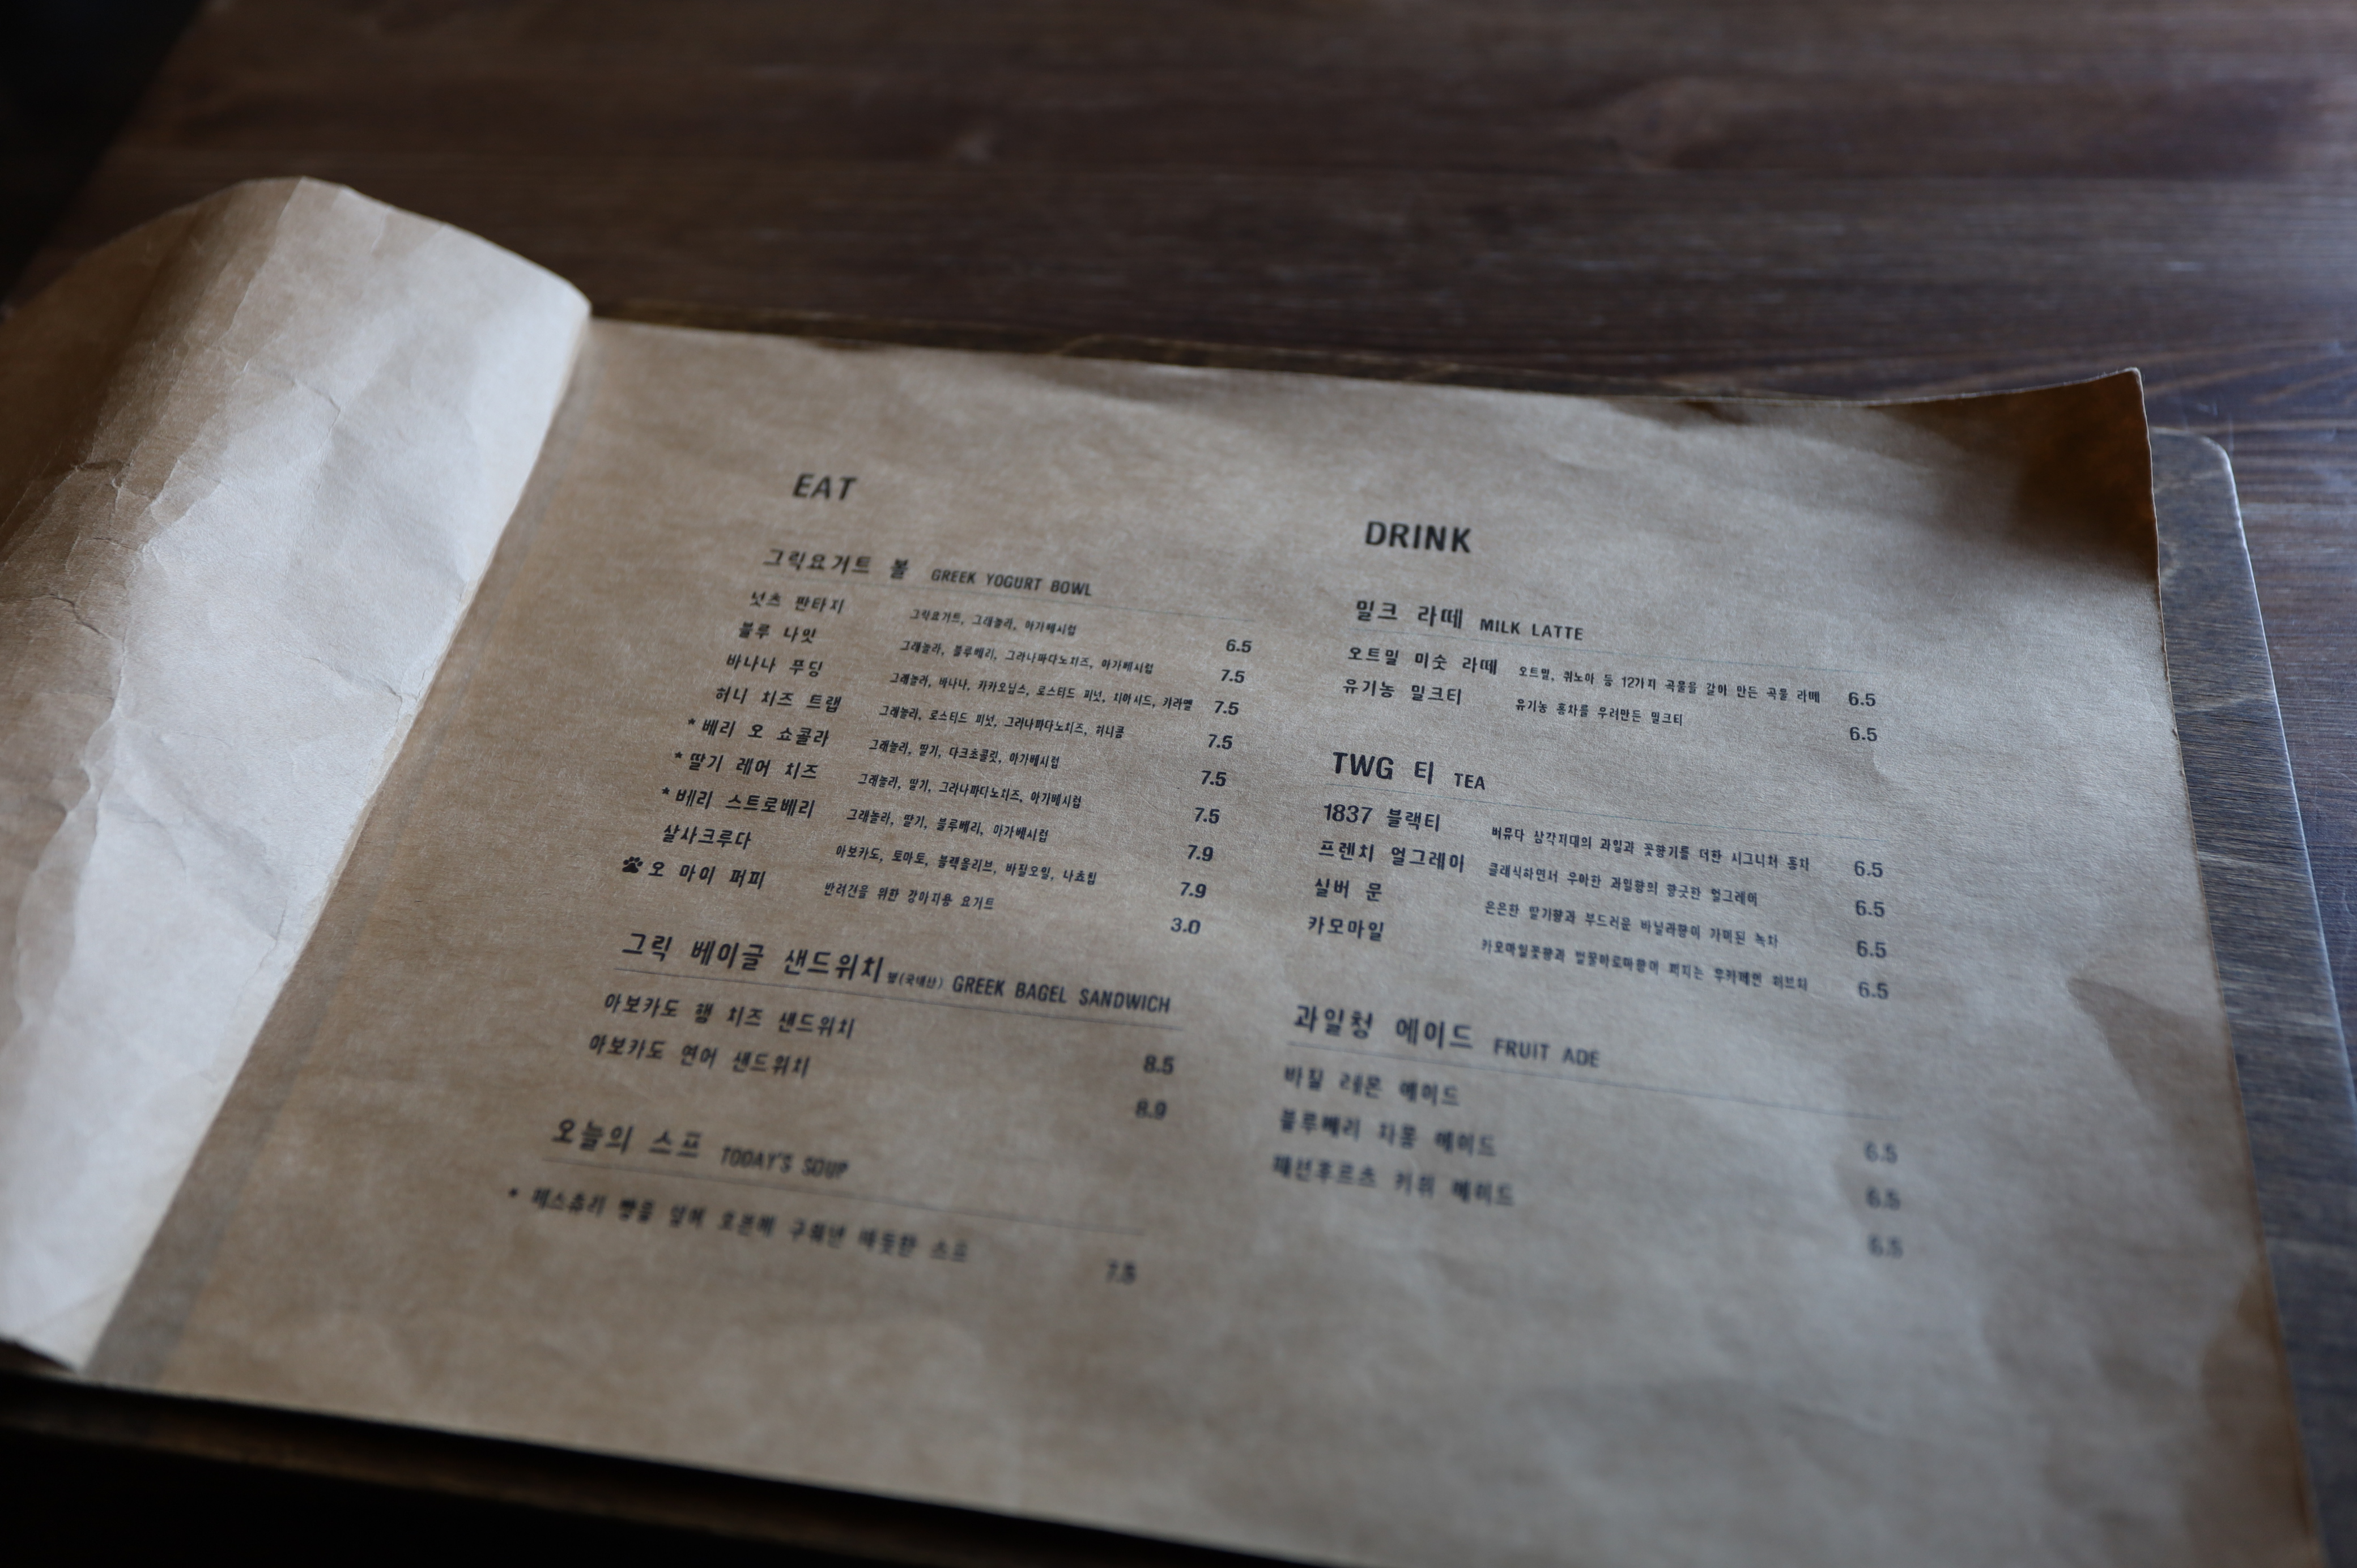 EAT
그릭요거트 볼 GREEK YOGURT BOWL
넛츠 판타지 그릭요거트, 그래놀라, 아가베시럽 6.5
블루 나잇 그래놀라, 블루베리, 그라나파다노치즈, 아가베시럽 7.5
바나나 푸딩 그래놀라, 바나나, 카카오닙스, 로스티드 피넛, 치아시드, 카라멜 7.5
허니 치즈 트랩 그래놀라, 로스티드 피넛, 그라나파다노치즈, 허니콤 7.5
*베리 오 쇼콜라 그래놀라, 딸기, 다크초콜릿, 아가베시럽 7.5
*딸기 레어 치즈 그래놀라, 딸기, 그라나파다노치즈, 아가베시럽 7.5
*베리 스트로베리 그래놀라, 딸기, 블루베리, 아가베시럽 7.9
살사크루다 아보카도, 토마토, 블랙올리브, 바질오일, 나쵸칩 7.9
오 마이 퍼피 반려견을 위한 강아지용 요거트 3.0
그릭 베이글 샌드위치 햄(국내산) GREEK BAGEL SANDWICH
아보카도 햄 치즈 샌드위치 8.5
아보카도 연어 샌드위치 8.9
오늘의 스프 TODAY'S SOUP
* 페스츄리 빵을 덮어 오븐에 구워낸 따듯한 스프 7.5
DRINK
밀크 라떼 MILK LATTE
오트밀 미숫 라떼 오트밀, 퀴노아 등 12가지 곡물을 갈아 만든 곡물 라떼 6.5
유기농 밀크티 유기농 홍차를 우려만든 밀크티 6.5
TWG 티 TEA
1837 블랙티 버뮤다 삼각지대의 과일과 꽃향기를 더한 시그니처 홍차 6.5
프렌치 얼그레이 클래식하면서 우아한 과일향의 향긋한 얼그레이 6.5
실버 문 은은한 딸기향과 부드러운 바닐라향이 가미된 녹차 6.5
카모마일 카모마일꽃향과 벌꿀아로마향이 퍼지는 무카페인 허브차 6.5
과일청 에이드 FRUIT ADE
바질 레몬 에이드 6.5
블루베리 자몽 에이드 6.5
패션후르츠 키위 에이드 6.5